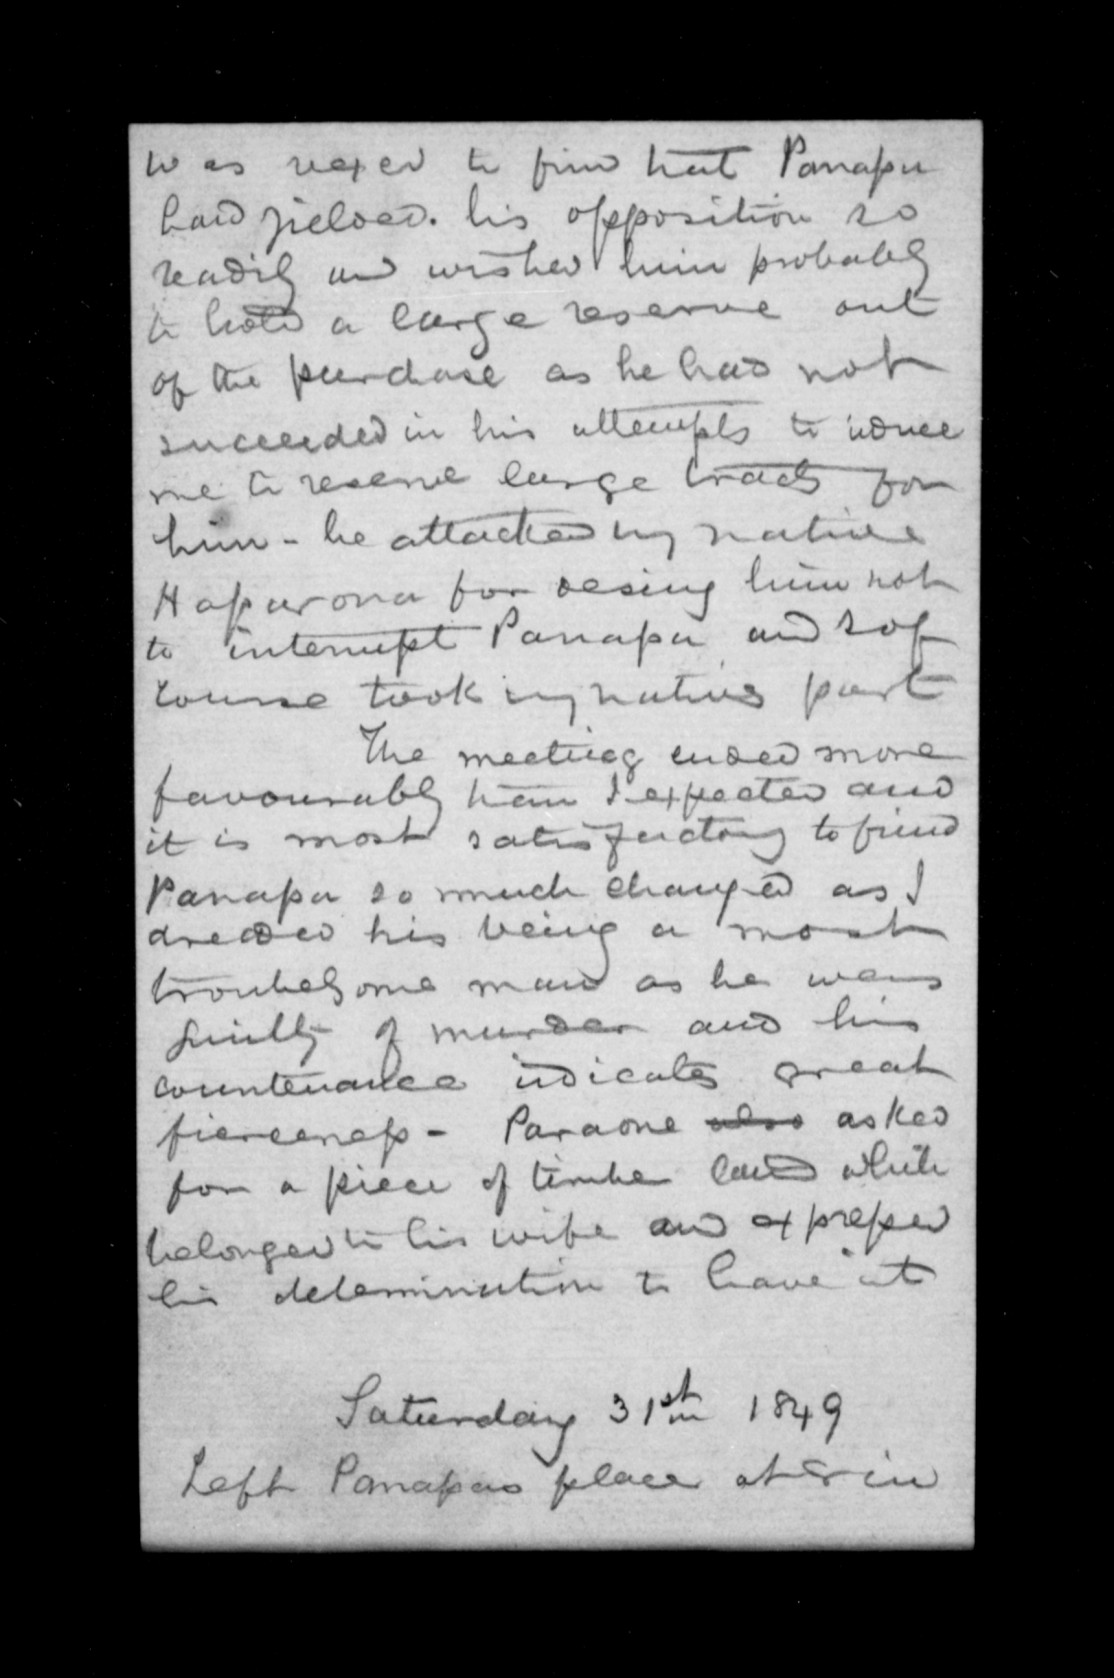 was vexed to find that Panapa
had yielded. his opposition so
readily and wished him probably
to hold a large reserve out
of the purchase as he had not
succeeded in his attempts to induce
me to reserve large tracts for
him - he attacked my native
Haparona for desiring him not
to interrupt Panapa and I of
course took my natives part
The meeting ended more
favourably than I expected and
it is most satisfactory to find
Panapa so much changed as I
dreaded his being a most
troublesome man as he was
guilty of murder and his
countenance indicates great
fierceness - Paraone also asked
for a piece of timber land which
belonged to his wife and expressed
his determination to have it
Saturday 31st 1849
Left Panapas place at 8 in